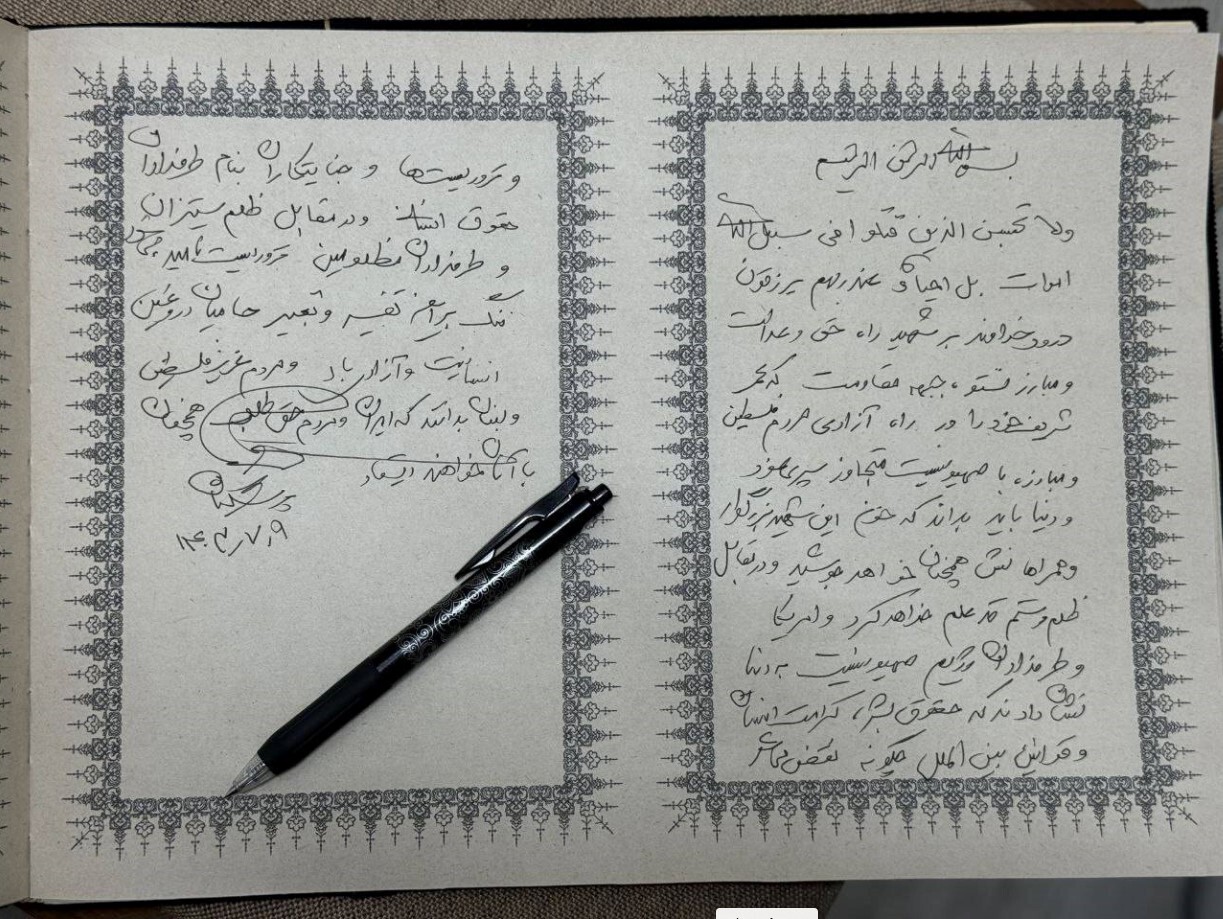 بسم الله الرحمن الرحیم
ولا تحسبن الذین قتلوا فی سبیل الله
اموات بل احیاء عند ربهم یرزقون
درود خداوند بر شهید راه حق و عدالت
و مبارز نستوه جبهه مقاومت که عمر
شریف خود را در راه آزادی مردم فلسطین
و مبارزه با صهیونیست متجاوز سپری نمود
و دنیا باید بداند که خون این شهید بزرگوار
و همراهانش همچنان خواهد جوشید و در مقابل
ظلم و ستم قد علم خواهد کرد و امریکا
و طرفداران رژیم صهیونیست به دنیا
نشان دادند که حقوق بشر، کرامت انسان
و قوانین بین الملل چگونه نقض
و تروریست‌ها و جنایتکاران بنام طرفداران
حقوق انسان و در مقابل ظلم ستیزان
و طرفداران مظلومین تروریست نامیده
ننگ بر این تفسیر و تعبیر حامیان دروغین
انسانیت و آزادی باد و مردم عزیز فلسطین
و لبنان بدانند که ایران و مردم حق طلب همچنان
با آنان خواهند ایستاد
پزشکیان
۱۴۰۳/۷/۹